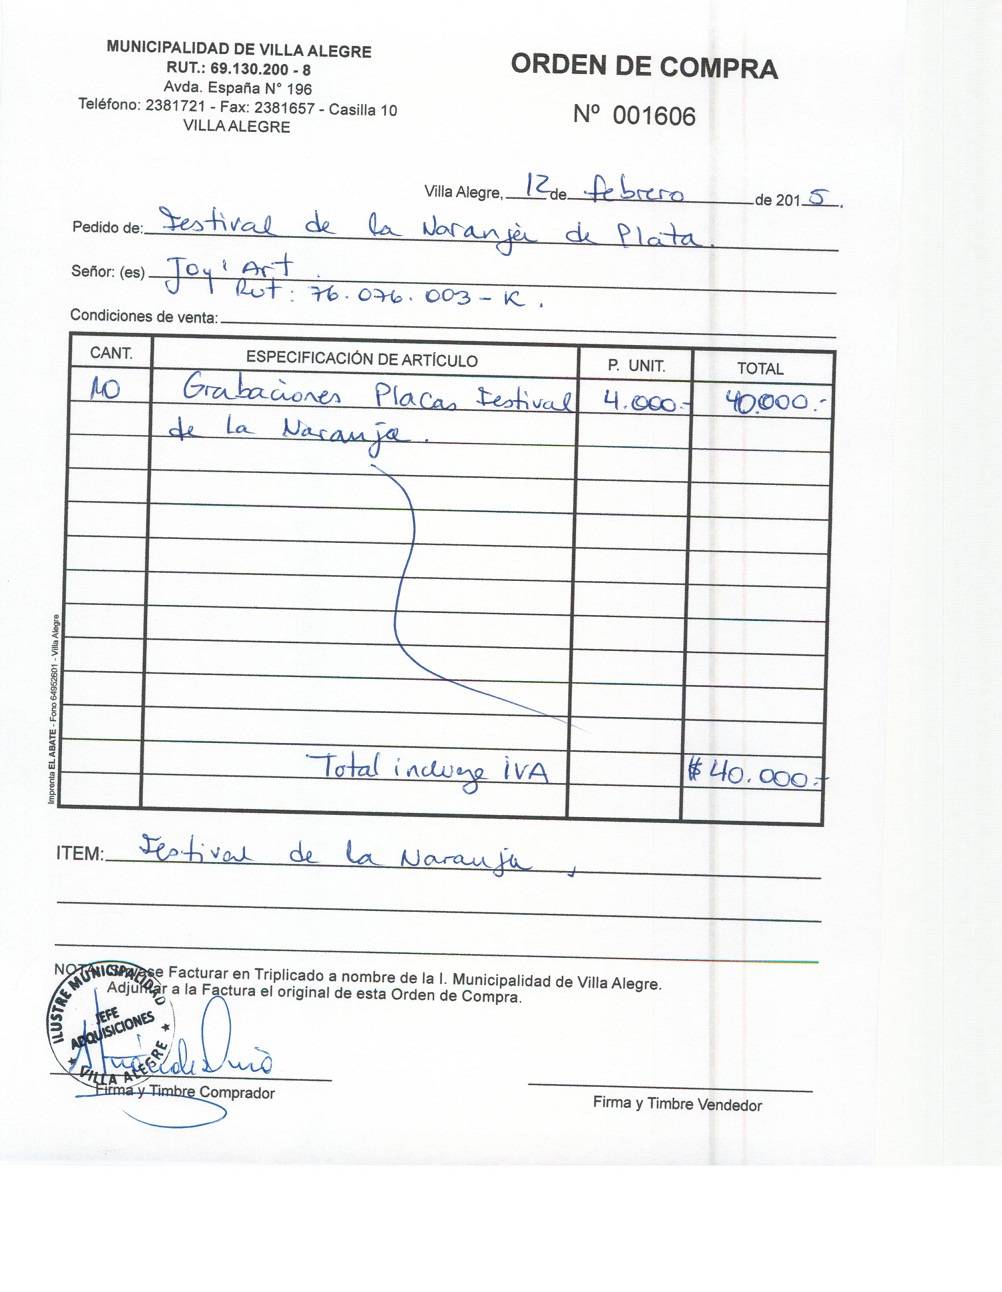 MUNICIPALIDAD DE VILLA ALEGRE
RUT.: 69.130.200 - 8
Avda. España N° 196
Teléfono: 2381721 - Fax: 2381657 - Casilla 10
VILLA ALEGRE
ORDEN DE COMPRA
Nº 001606
Villa Alegre, 12 de febrero de 2015.
Pedido de: Festival de la Naranja de Plata.
Señor: (es) Joy' Art.
Rut: 76.076.003-K.
Condiciones de venta:
CANT. ESPECIFICACIÓN DE ARTÍCULO P. UNIT. TOTAL
10 Grabaciones Placas Festival 4.000.- 40.000.-
de la Naranja.
Total incluye IVA $ 40.000.-
Imprenta EL ABATE - Fono 64952601 - Villa Alegre
ITEM: Festival de la Naranja
Facturar en Triplicado a nombre de la I. Municipalidad de Villa Alegre.
Adjuntar a la Factura el original de esta Orden de Compra.
ILUSTRE MUNICIPALIDAD
JEFE
ADQUISICIONES
VILLA ALEGRE
Firma y Timbre Comprador
Firma y Timbre Vendedor